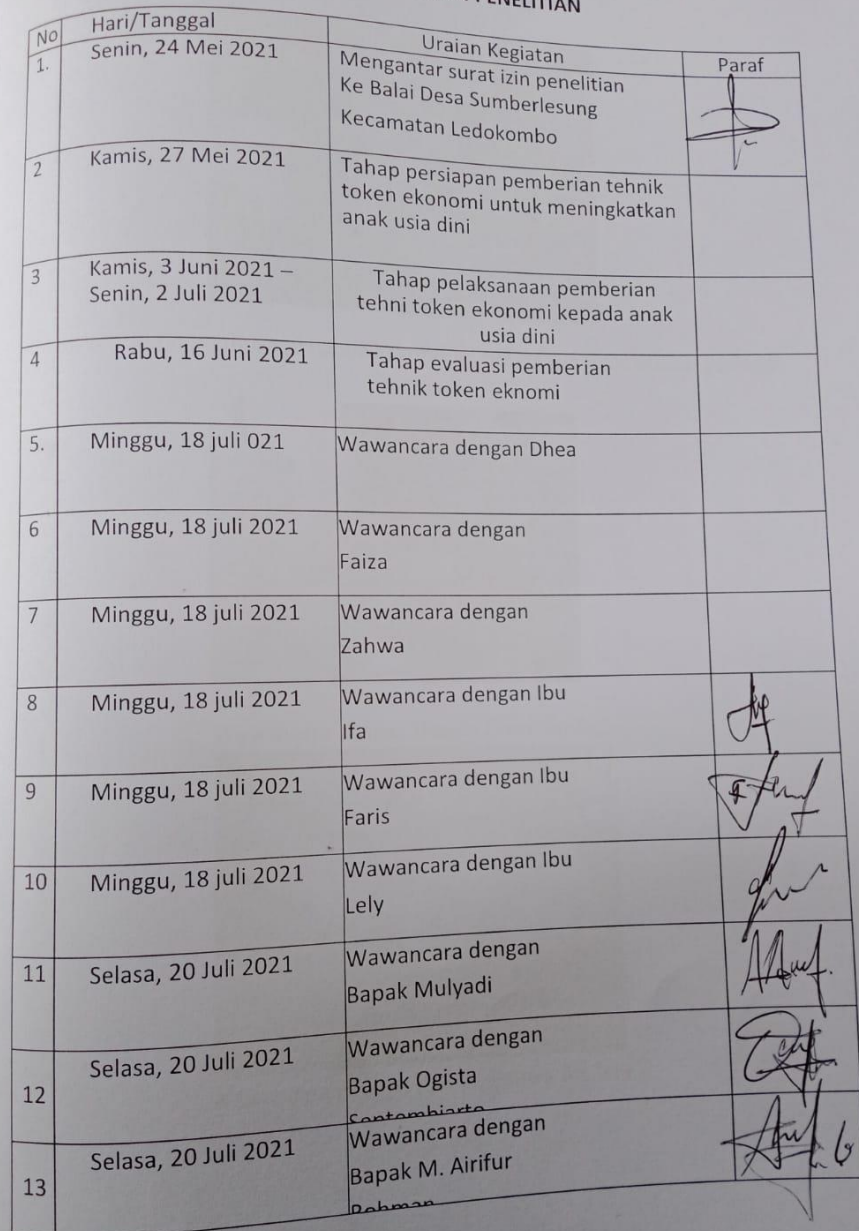 PENELITIAN
No Hari/Tanggal Uraian Kegiatan Paraf
1. Senin, 24 Mei 2021 Mengantar surat izin penelitian
Ke Balai Desa Sumberlesung
Kecamatan Ledokombo
2 Kamis, 27 Mei 2021 Tahap persiapan pemberian tehnik
token ekonomi untuk meningkatkan
anak usia dini
3 Kamis, 3 Juni 2021 – Tahap pelaksanaan pemberian
Senin, 2 Juli 2021 tehni token ekonomi kepada anak
usia dini
4 Rabu, 16 Juni 2021 Tahap evaluasi pemberian
tehnik token eknomi
5. Minggu, 18 juli 021 Wawancara dengan Dhea
6 Minggu, 18 juli 2021 Wawancara dengan
Faiza
7 Minggu, 18 juli 2021 Wawancara dengan
Zahwa
8 Minggu, 18 juli 2021 Wawancara dengan Ibu
Ifa
9 Minggu, 18 juli 2021 Wawancara dengan Ibu
Faris
10 Minggu, 18 juli 2021 Wawancara dengan Ibu
Lely
11 Selasa, 20 Juli 2021 Wawancara dengan
Bapak Mulyadi
12 Selasa, 20 Juli 2021 Wawancara dengan
Bapak Ogista
13 Selasa, 20 Juli 2021 Wawancara dengan
Bapak M. Airifur
Rohman